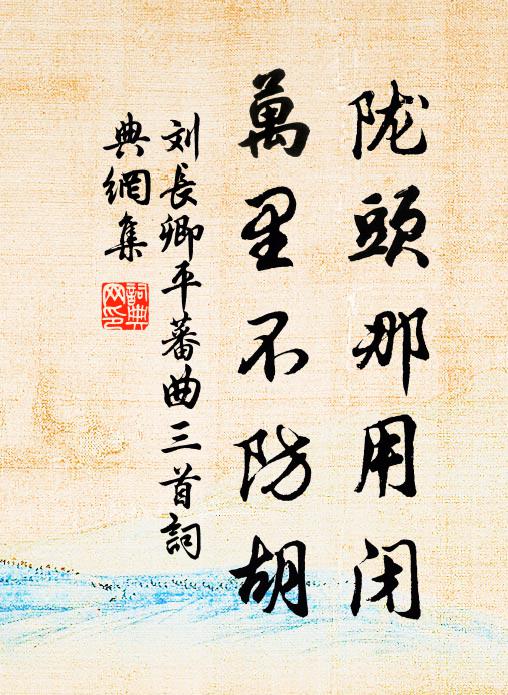 陇頭那用闭
萬里不防胡
刘長卿平蕃曲三首詞
典網集
詞典
网印